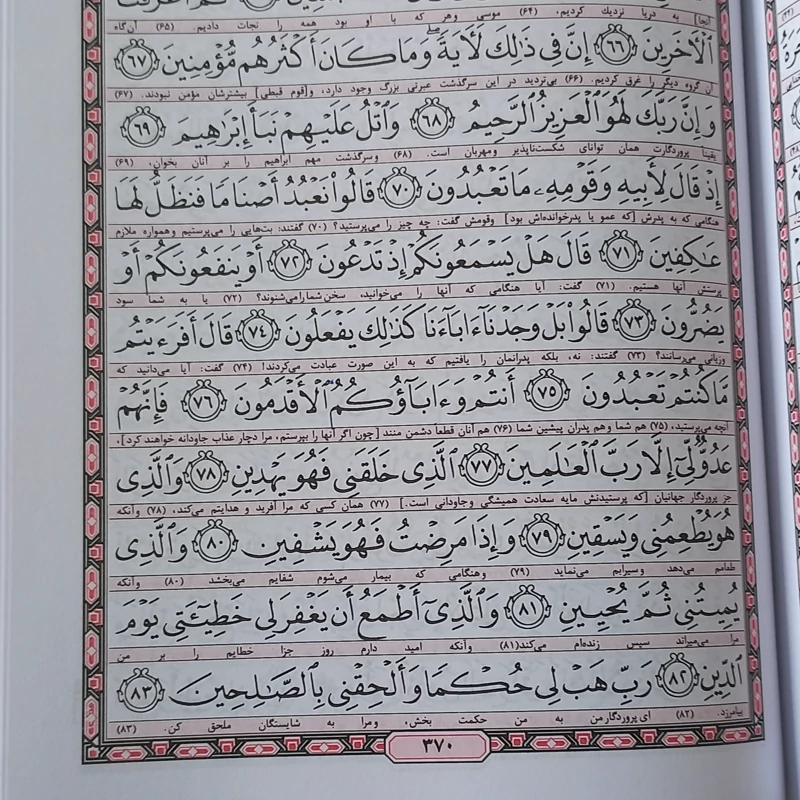 آنجا] به دریا نزدیک کردیم، (۶۴) موسی وهر که با او بود همه را نجات دادیم. (۶۵) آن‌گاه
ٱلْأَخَرِينَ ﴿٦٦﴾ إِنَّ فِى ذَٰلِكَ لَأَيَةً ۖ وَمَا كَانَ أَكْثَرُهُم مُّؤْمِنِينَ ﴿٦٧﴾
آن گروه دیگر را غرق کردیم. (۶۶) بی‌تردید در این سرگذشت عبرتی بزرگ وجود دارد، و[قوم قبطی] بیشترشان مؤمن نبودند. (۶۷)
وَإِنَّ رَبَّكَ لَهُوَ ٱلْعَزِيزُ ٱلرَّحِيمُ ﴿٦٨﴾ وَٱتْلُ عَلَيْهِمْ نَبَأَ إِبْرَٰهِيمَ ﴿٦٩﴾
یقیناً پروردگارت همان توانای شکست‌ناپذیر ومهربان است. (۶۸) وسرگذشت مهم ابراهیم را بر آنان بخوان، (۶۹)
إِذْ قَالَ لِأَبِيهِ وَقَوْمِهِۦ مَا تَعْبُدُونَ ﴿٧٠﴾ قَالُوا۟ نَعْبُدُ أَصْنَامًا فَنَظَلُّ لَهَا
هنگامی که به پدرش [که عمو یا پدرخوانده‌اش بود] وقومش گفت: چه چیز را می‌پرستید؟ (۷۰) گفتند: بت‌هایی را می‌پرستیم وهمواره ملازم
عَٰكِفِينَ ﴿٧١﴾ قَالَ هَلْ يَسْمَعُونَكُمْ إِذْ تَدْعُونَ ﴿٧٢﴾ أَوْ يَنفَعُونَكُمْ أَوْ
پرستش آنها هستیم. (۷۱) گفت: آیا هنگامی که آنها را می‌خوانید، سخن شما را می‌شنوند؟ (۷۲) یا به شما سود
يَضُرُّونَ ﴿٧٣﴾ قَالُوا۟ بَلْ وَجَدْنَآ ءَابَآءَنَا كَذَٰلِكَ يَفْعَلُونَ ﴿٧٤﴾ قَالَ أَفَرَءَيْتُم
وزیانی می‌رسانند؟ (۷۳) گفتند: نه، بلکه پدرانمان را یافتیم که به این صورت عبادت می‌کردند! (۷۴) گفت: آیا می‌دانید که
مَّا كُنتُمْ تَعْبُدُونَ ﴿٧٥﴾ أَنتُمْ وَءَابَآؤُكُمُ ٱلْأَقْدَمُونَ ﴿٧٦﴾ فَإِنَّهُمْ
آنچه می‌پرستید، (۷۵) هم شما وهم پدران پیشین شما (۷۶) هم آنان قطعاً دشمن منند [چون اگر آنها را بپرستم، مرا دچار عذاب جاودانه خواهند کرد]،
عَدُوٌّ لِّىٓ إِلَّا رَبَّ ٱلْعَٰلَمِينَ ﴿٧٧﴾ ٱلَّذِى خَلَقَنِى فَهُوَ يَهْدِينِ ﴿٧٨﴾ وَٱلَّذِى
جز پروردگار جهانیان [که پرستیدنش مایه سعادت همیشگی وجاودانی است.] (۷۷) همان کسی که مرا آفرید و هدایتم می‌کند، (۷۸) وآنکه
هُوَ يُطْعِمُنِى وَيَسْقِينِ ﴿٧٩﴾ وَإِذَا مَرِضْتُ فَهُوَ يَشْفِينِ ﴿٨٠﴾ وَٱلَّذِى
طعامم می‌دهد و سیرابم می‌نماید (۷۹) وهنگامی که بیمار می‌شوم شفایم می‌بخشد (۸۰) وآنکه
يُمِيتُنِى ثُمَّ يُحْيِينِ ﴿٨١﴾ وَٱلَّذِىٓ أَطْمَعُ أَن يَغْفِرَ لِى خَطِيٓـَٔتِى يَوْمَ
مرا می‌میراند سپس زنده‌ام می‌کند(۸۱) وآنکه امید دارم روز جزا خطایم را بر من
ٱلدِّينِ ﴿٨٢﴾ رَبِّ هَبْ لِى حُكْمًا وَأَلْحِقْنِى بِٱلصَّٰلِحِينَ ﴿٨٣﴾
بیامرزد. (۸۲) ای پروردگار من به من حکمت بخش، ومرا به شایستگان ملحق کن. (۸۳)
۳۷۰